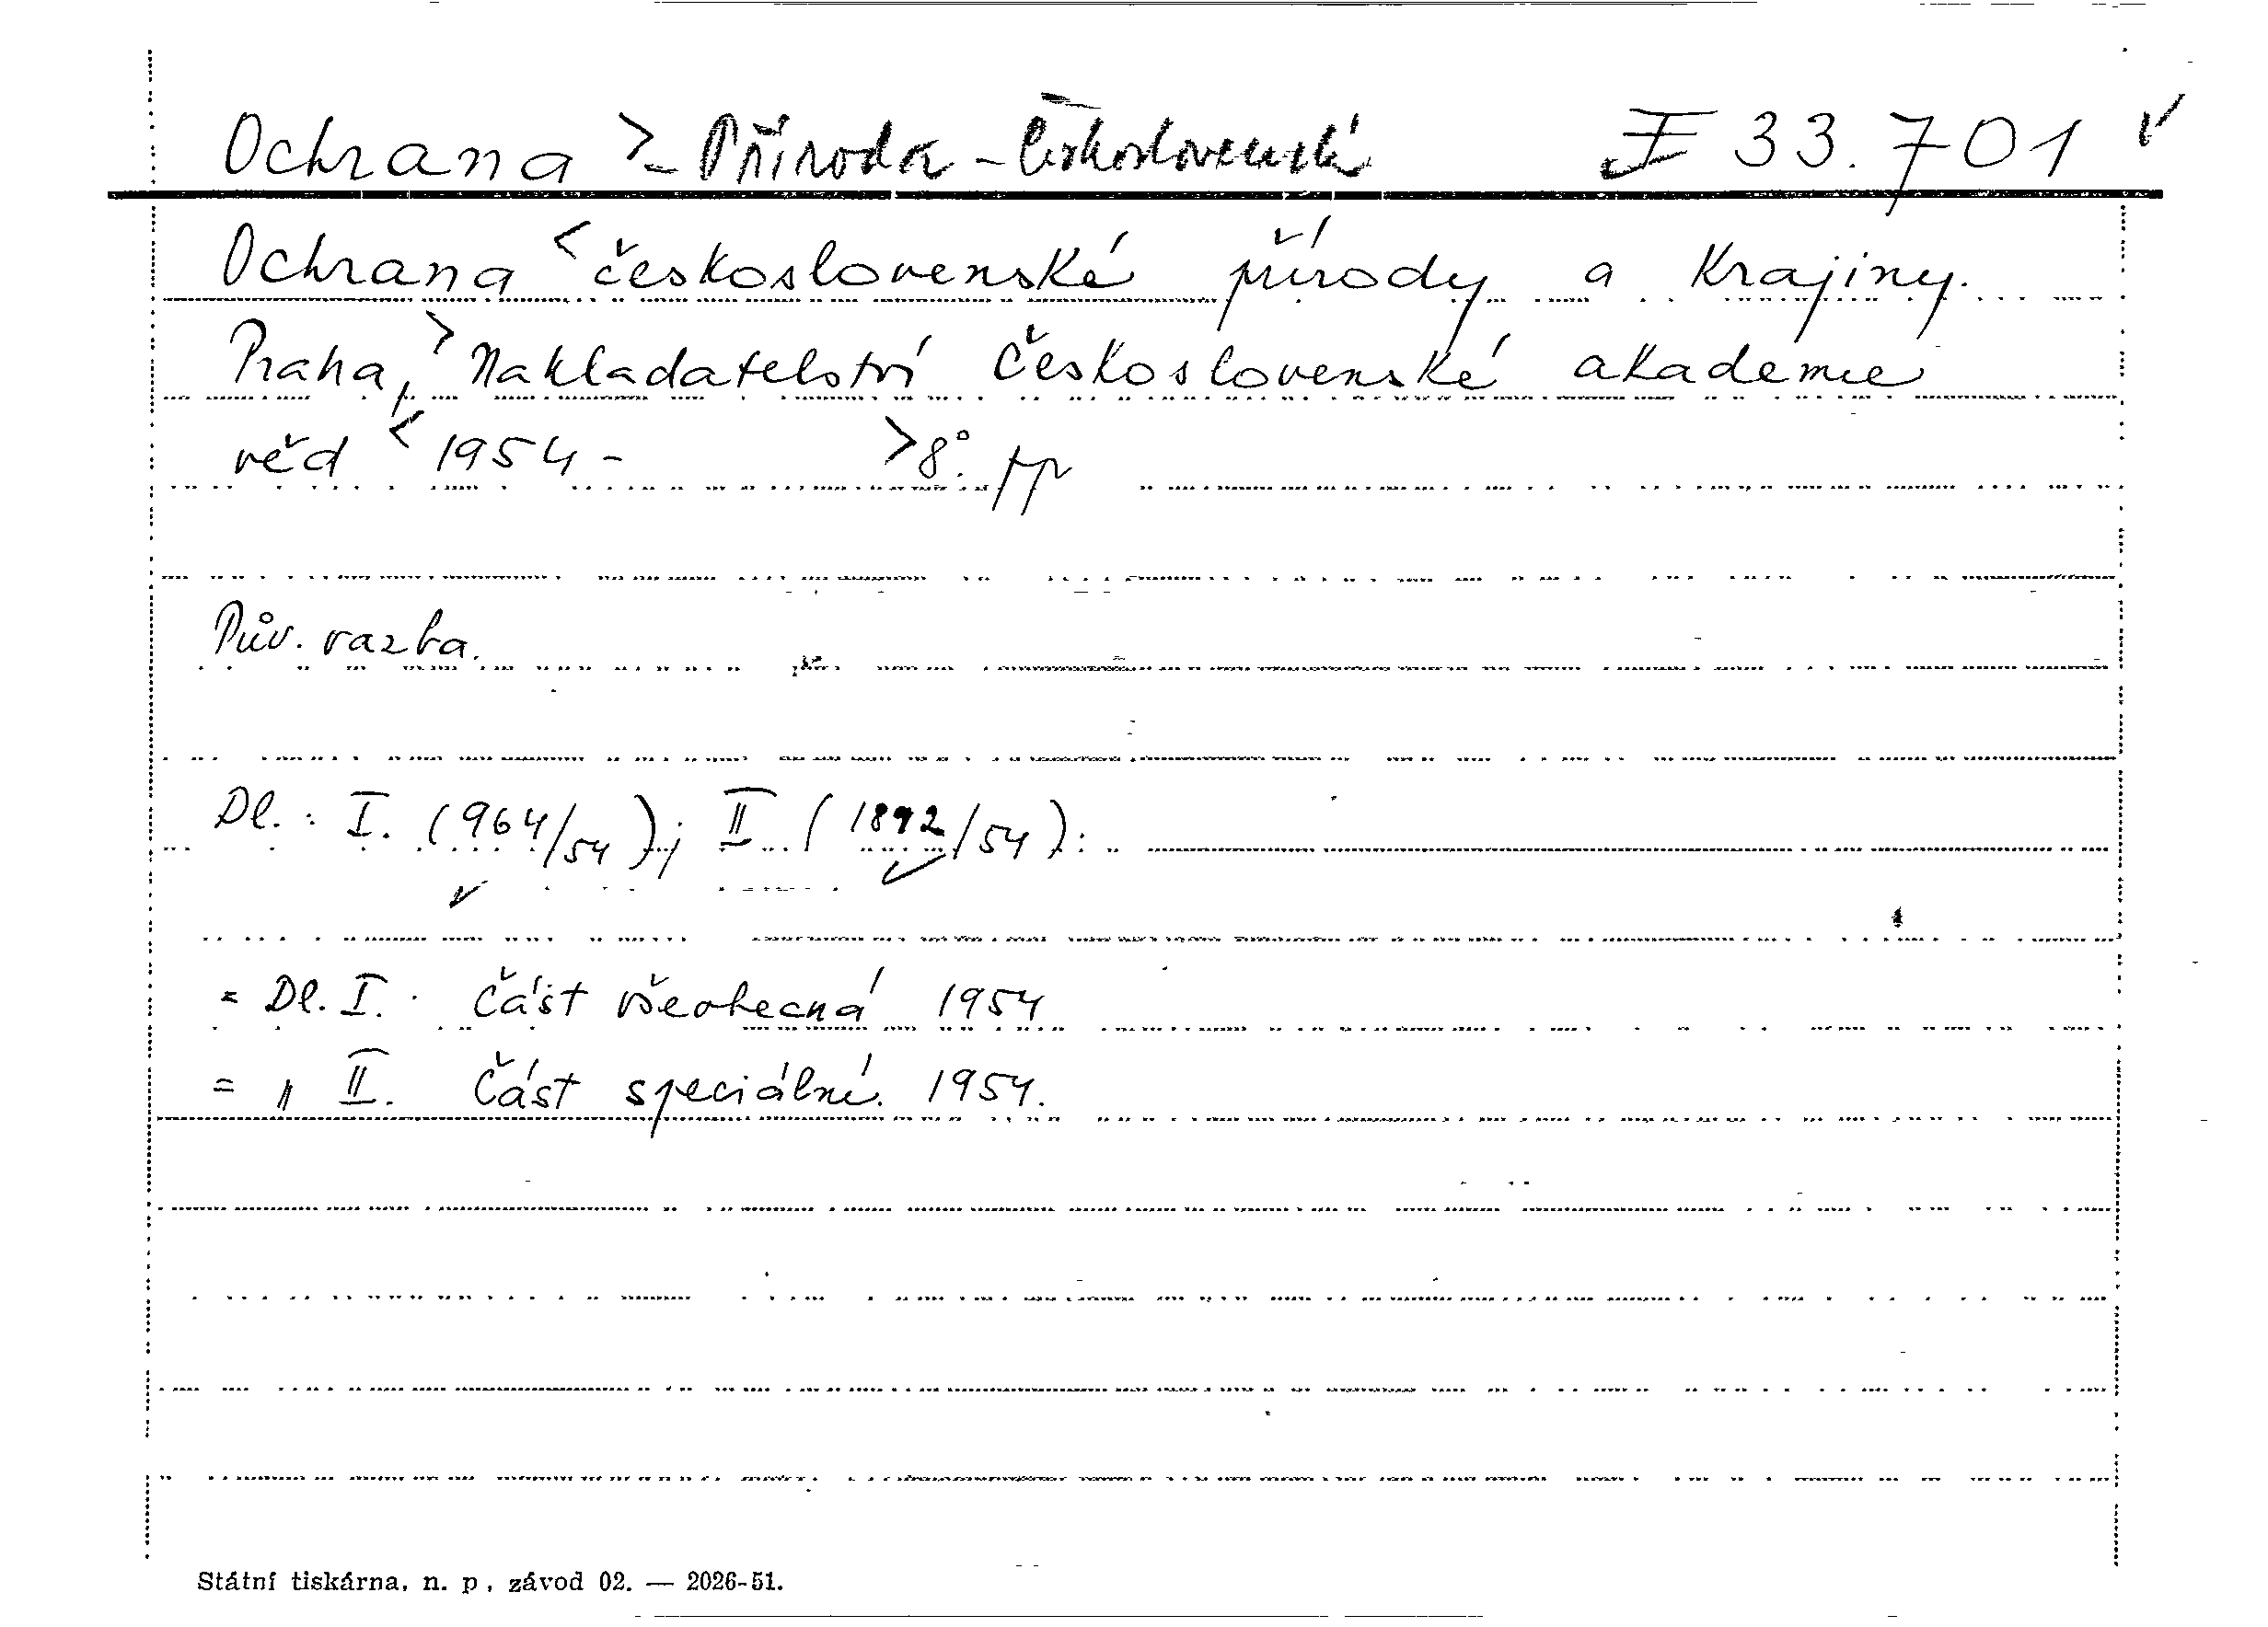 Ochrana >- Příroda - Československá I 33.701 ✓
Ochrana < československé přírody a krajiny.
Praha, > Nakladatelství Československé akademie
věd < 1954 - > 8°. pp
Pův. vazba.
Dl. : I. (964/54); II (1892/54).
= Dl. I. Část všeobecná 1954
= „ II. Část speciální. 1954.
Státní tiskárna, n. p., závod 02. — 2026-51.